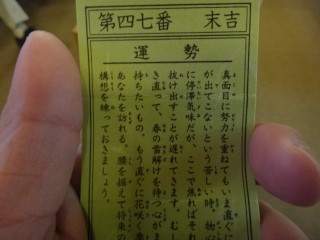 第四七番 末吉
運勢
真面目に努力を重ねてもいま直ぐに
が出てこないという苦しい時。物
に停滞気味だが、ここで焦ればそれ
抜け出すことが遅れてきます。む
き直って、春の雪解けを待つ心がま
持ちたいもの。もう直ぐに花咲く
あなたを訪れる。腰を据えて将来の
構想を練っておきましょう。